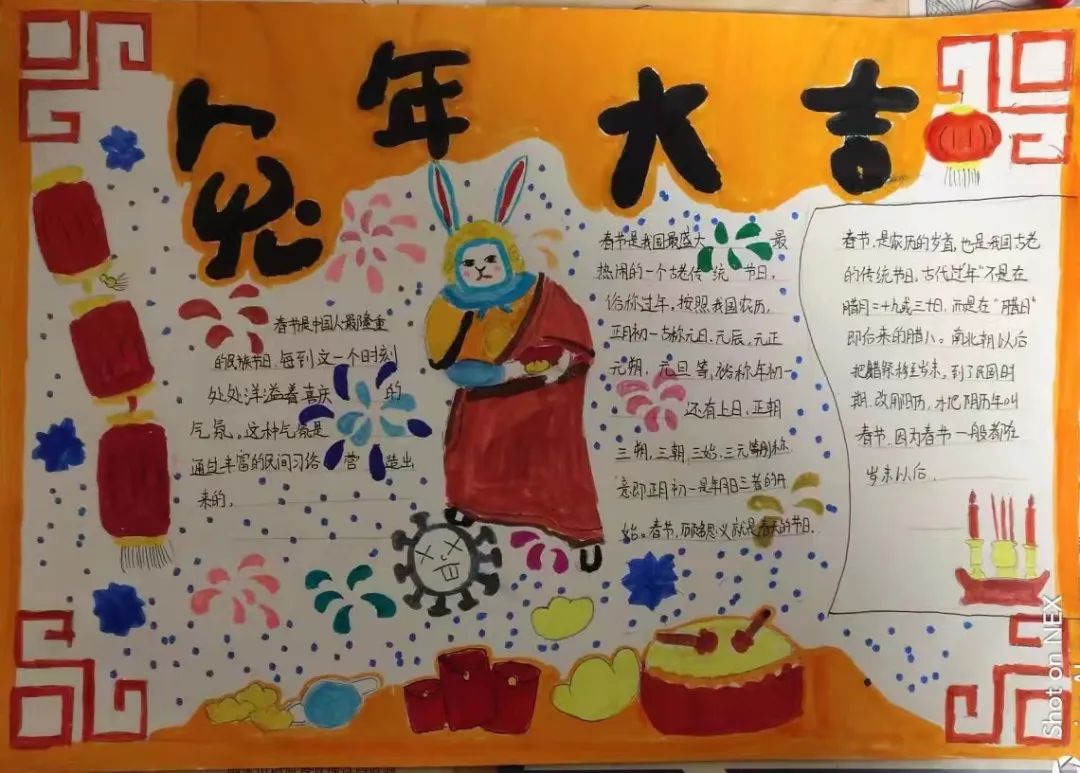 兔年大吉
春节是中国人最隆重
的民族节日,每到这一个时刻
处处洋溢着喜庆的
气氛,这种气氛是
通过丰富的民间习俗营造出
来的,
春节是我国最盛大最
热闹的一个古老传统节日,
俗称过年,按照我国农历,
正月初一古称元日、元辰、元正
元朔,元旦等,俗称年初一
还有上日,正朝
三朔,三朝,三始、三元等别称
意即正月初一是年月日三者的开
始。春节,顾名思义就是春天的节日.
春节,是农历的岁首,也是我国古老
的传统节日,古代过"年"不是在
腊月二十九或三十日,而是在"腊日"
即后来的腊八。南北朝以后
把腊祭移至岁末,到了民国时
期,改用阳历,才把阴历年叫
春节,因为春节一般都在
岁末以后.
Shot on NEX